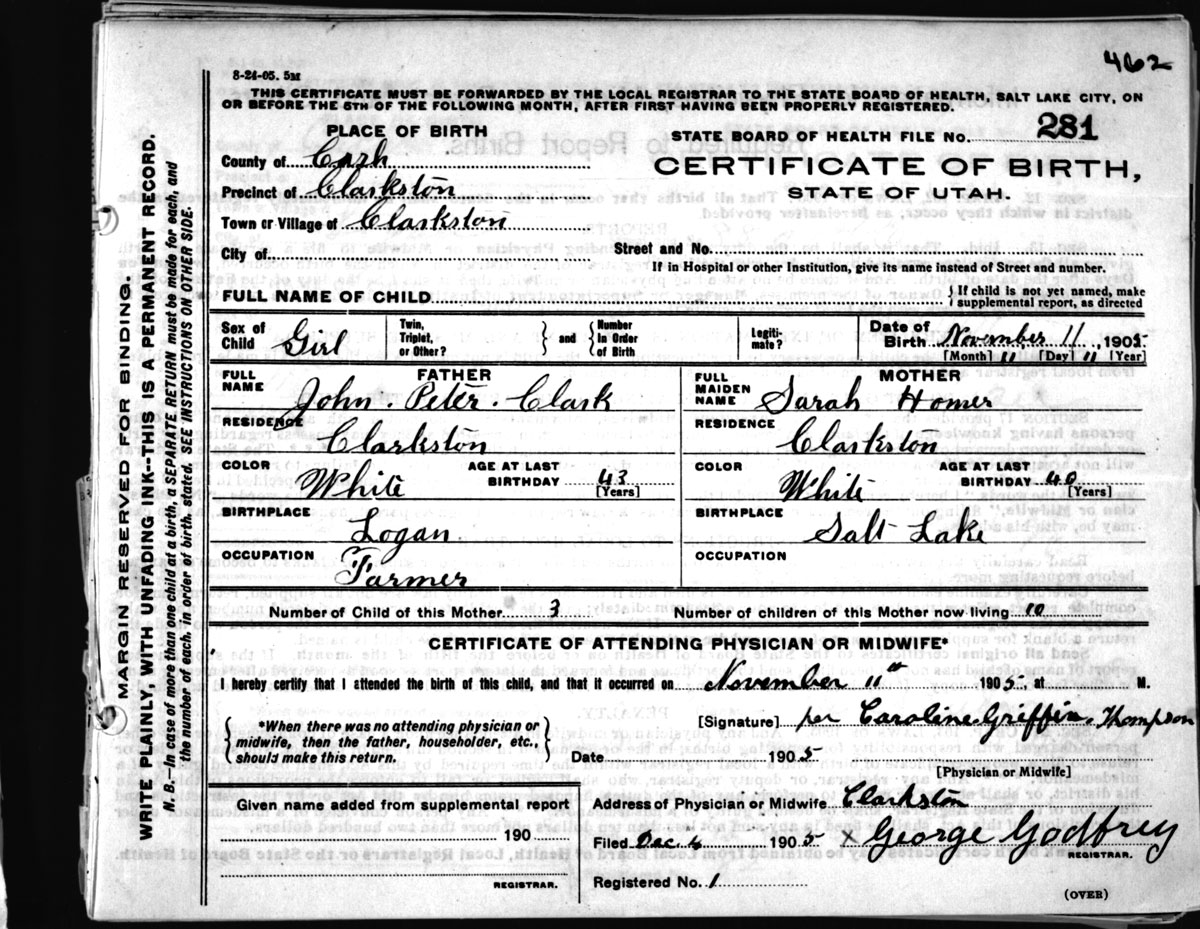 462
8-24-05. 5M
THIS CERTIFICATE MUST BE FORWARDED BY THE LOCAL REGISTRAR TO THE STATE BOARD OF HEALTH, SALT LAKE CITY, ON
OR BEFORE THE 5TH OF THE FOLLOWING MONTH, AFTER FIRST HAVING BEEN PROPERLY REGISTERED.
MARGIN RESERVED FOR BINDING.
WRITE PLAINLY, WITH UNFADING INK--THIS IS A PERMANENT RECORD.
N. B.--In case of more than one child at a birth, a SEPARATE RETURN must be made for each, and
the number of each, in order of birth, stated. SEE INSTRUCTIONS ON OTHER SIDE.
PLACE OF BIRTH
STATE BOARD OF HEALTH FILE NO. 281
County of Cash
CERTIFICATE OF BIRTH,
Precinct of Clarkston
STATE OF UTAH.
Town or Village of Clarkston
City of
Street and No.
If in Hospital or other Institution, give its name instead of Street and number.
FULL NAME OF CHILD
} If child is not yet named, make
supplemental report, as directed
Sex of Child Girl
Twin, Triplet, or Other? } and { Number in Order of Birth
Legitimate?
Date of Birth November 11, 1905
[Month] " [Day] " [Year]
FATHER
FULL NAME John. Peter. Clark
RESIDENCE Clarkston
COLOR White AGE AT LAST BIRTHDAY 43 [Years]
BIRTHPLACE Logan.
OCCUPATION Farmer
MOTHER
FULL MAIDEN NAME Sarah Homer
RESIDENCE Clarkston
COLOR White AGE AT LAST BIRTHDAY 40 [Years]
BIRTHPLACE Salt Lake
OCCUPATION
Number of Child of this Mother 3 Number of children of this Mother now living 10
CERTIFICATE OF ATTENDING PHYSICIAN OR MIDWIFE*
I hereby certify that I attended the birth of this child, and that it occurred on November 11th 1905, at M.
{ *When there was no attending physician or
midwife, then the father, householder, etc.,
should make this return. }
[Signature] per Caroline Griffin. Thompson
Date 1905
[Physician or Midwife]
Given name added from supplemental report
190
REGISTRAR.
Address of Physician or Midwife Clarkston
Filed Dec. 4 1905 x George Godfrey
REGISTRAR.
Registered No. 1
(OVER)